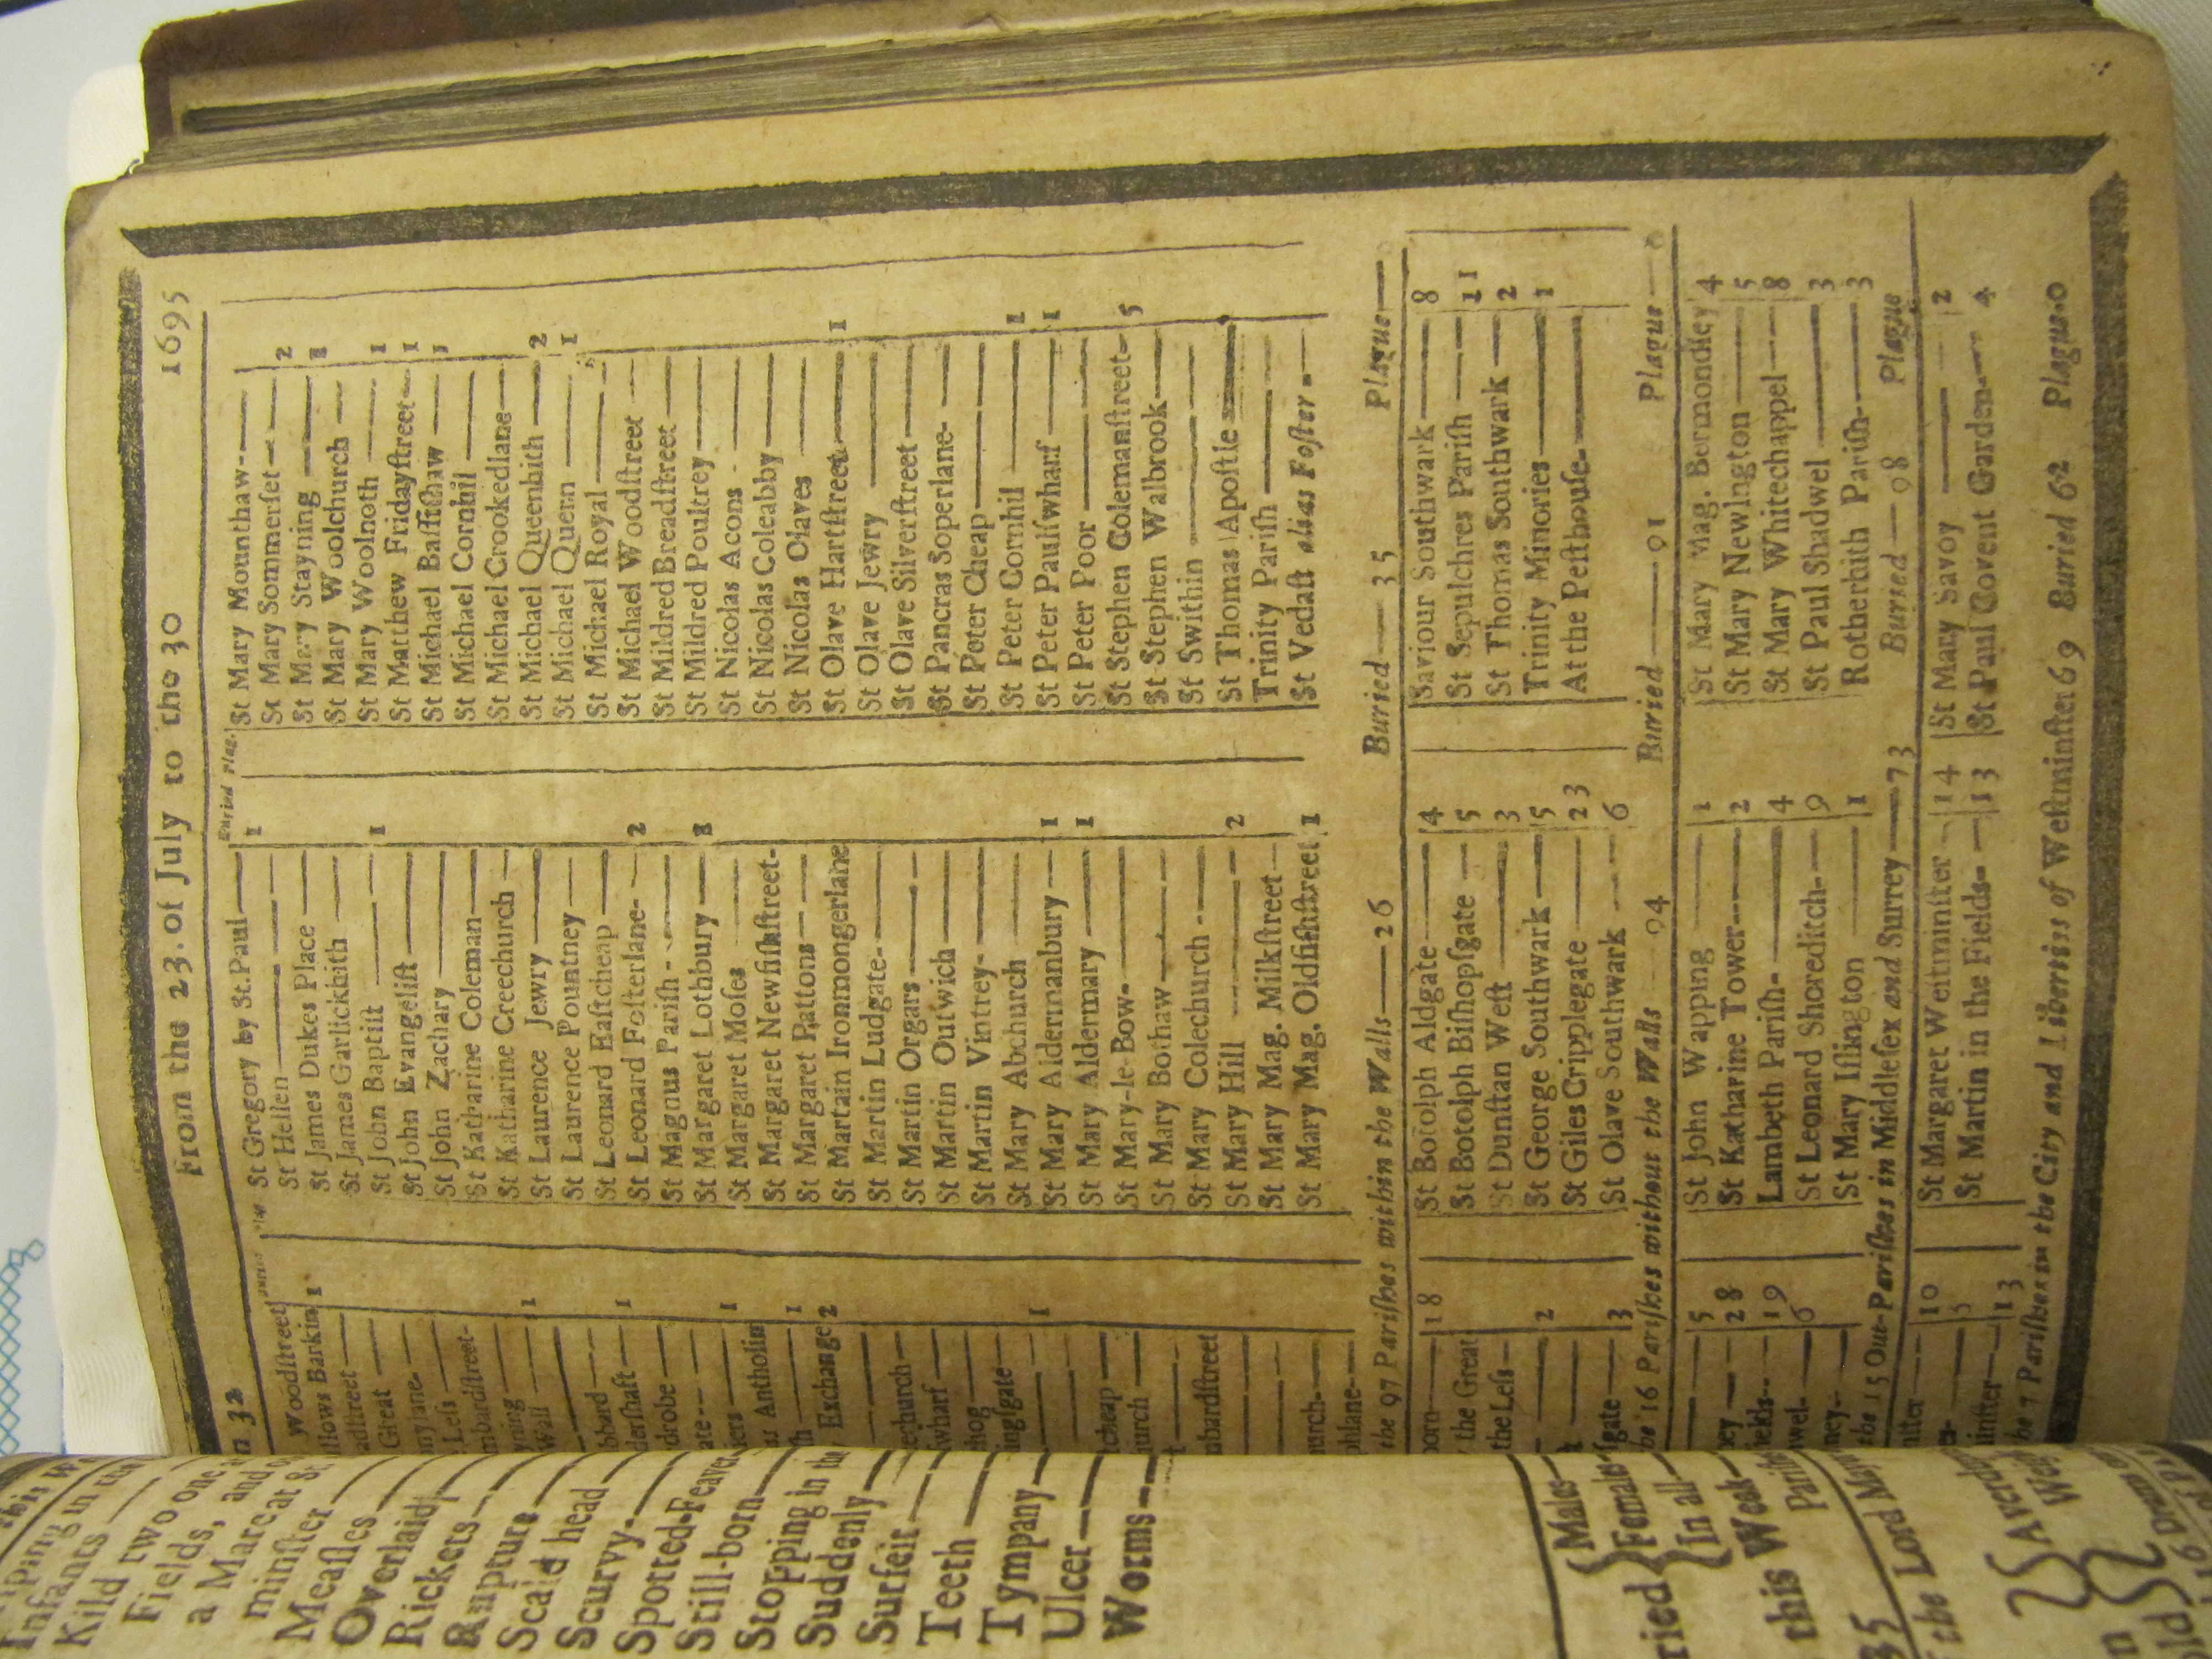 From the 23. of July to the 30 1695
n 32
Woodſtreet
llows Barkin 1
adſtreet
Great
nylane
Leſs
mbardſtreet
yning 1
Wall
bbard 1
derſhaft
drobe
ate 1
iers
as Antholin 1
h
Exchange 2
echurch
wharf
hog
ingſgate
1
tcheap
urch
t
nbardſtreet
urch
phlane
St Gregory by St.Paul 1
St Hellen
St James Dukes Place
St James Garlickhith
St John Baptiſt 1
St John Evangeliſt
St John Zachary
St Katharine Coleman
St Katharine Creechurch
St Laurence Jewry
St Laurence Pountney
St Leonard Eaſtcheap
St Leonard Foſterlane 2
St Magnus Pariſh
St Margaret Lothbury 1
St Margaret Moſes
St Margaret Newfiſhſtreet
St Margaret Pattons
St Martain Ironmongerlane
St Martin Ludgate
St Martin Orgars
St Martin Outwich
St Martin Vintrey
St Mary Abchurch
St Mary Aldermanbury 1
St Mary Aldermary 1
St Mary-le-Bow
St Mary Bothaw
St Mary Colechurch
St Mary Hill 2
St Mary Mag. Milkſtreet
St Mary Mag. Oldfiſhſtreet 1
Buried Plag.
St Mary Mounthaw
St Mary Sommerſet 2
St Mary Stayning 1
St Mary Woolchurch
St Mary Woolnoth 1
St Matthew Fridayſtreet 1
St Michael Baſſiſhaw 1
St Michael Cornhil
St Michael Crookedlane
St Michael Queenhith 2
St Michael Quern 1
St Michael Royal
St Michael Woodſtreet
St Mildred Breadſtreet
St Mildred Poultrey
St Nicolas Acons
St Nicolas Coleabby
St Nicolas Olaves
St Olave Hartſtreet 1
St Olave Jewry
St Olave Silverſtreet
St Pancras Soperlane
St Peter Cheap
St Peter Cornhil 1
St Peter Paulſwharf 1
St Peter Poor
St Stephen Colemanſtreet 5
St Stephen Walbrook
St Swithin
St Thomas Apoſtle
Trinity Pariſh
St Vedaſt alias Foſter
the 97 Pariſhes within the Walls 26 Buried 35 Plague
born 18
the Great
the Leſs
2
ſgate 3
St Botolph Aldgate 4
St Botolph Biſhopſgate 5
St Dunſtan Weſt 3
St George Southwark 5
St Giles Cripplegate 23
St Olave Southwark 6
Saviour Southwark 8
St Sepulchres Pariſh 11
St Thomas Southwark 2
Trinity Minories 1
At the Peſthouſe
he 16 Pariſhes without the Walls 94 Buried 91 Plague 0
5
ey 28
ields 19
wel 6
ney
St John Wapping 1
St Katharine Tower 2
Lambeth Pariſh 4
St Leonard Shoreditch 9
St Mary Iſlington 1
St Mary Mag. Bermondſey 4
St Mary Newington 5
St Mary Whitechappel 8
St Paul Shadwel 3
Rotherhith Pariſh 3
the 15 Out-Pariſhes in Middleſex and Surrey 73 Buried 98 Plague
nſter 10
5
inſter 13
St Margaret Weſtminſter 14
St Martin in the Fields 13
St Mary Savoy 2
St Paul Covent Garden 4
he 7 Pariſhes in the City and Liberties of Weſtminſter 69 Buried 62 Plague 0
Infants
Kild two one
Fields,
a Mare at
minſter
Meaſles
Overlaid
Rickets
Rupture
Scald head
Scurvy
Spotted-Feaver
Still-born
Stopping in the
Suddenly
Surfeit
Teeth
Tympany
Ulcer
Worms
ried
Males
Females
In all
this Week
Pariſh
35
the Lord May